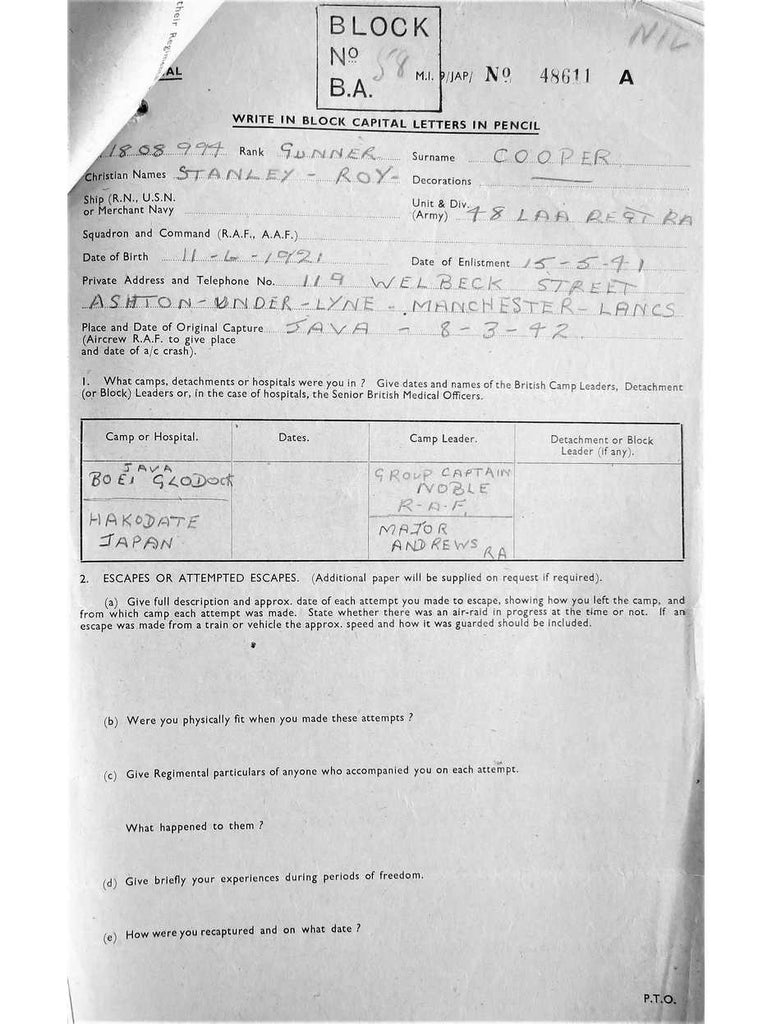 their Regim
AL
BLOCK
Nº 58
B.A.
NIL
M.I. 9/JAP/ Nº 48611 A
WRITE IN BLOCK CAPITAL LETTERS IN PENCIL
1808994 Rank GUNNER Surname COOPER
Christian Names STANLEY - ROY - Decorations —
Ship (R.N., U.S.N. or Merchant Navy
Unit & Div. (Army) 48 LAA REGT RA
Squadron and Command (R.A.F., A.A.F.)
Date of Birth 11-6-1921 Date of Enlistment 15-5-41
Private Address and Telephone No. 119 WELBECK STREET
ASHTON-UNDER-LYNE - MANCHESTER - LANCS
Place and Date of Original Capture JAVA - 8-3-42
(Aircrew R.A.F. to give place
and date of a/c crash).
1. What camps, detachments or hospitals were you in ? Give dates and names of the British Camp Leaders, Detachment
(or Block) Leaders or, in the case of hospitals, the Senior British Medical Officers.
Camp or Hospital. Dates. Camp Leader. Detachment or Block
Leader (if any).
JAVA
BOEI GLODOCK
GROUP CAPTAIN
NOBLE
R-A-F.
HAKODATE
JAPAN
MAJOR
ANDREWS RA
2. ESCAPES OR ATTEMPTED ESCAPES. (Additional paper will be supplied on request if required).
(a) Give full description and approx. date of each attempt you made to escape, showing how you left the camp, and
from which camp each attempt was made. State whether there was an air-raid in progress at the time or not. If an
escape was made from a train or vehicle the approx. speed and how it was guarded should be included.
(b) Were you physically fit when you made these attempts ?
(c) Give Regimental particulars of anyone who accompanied you on each attempt.
What happened to them ?
(d) Give briefly your experiences during periods of freedom.
(e) How were you recaptured and on what date ?
P.T.O.